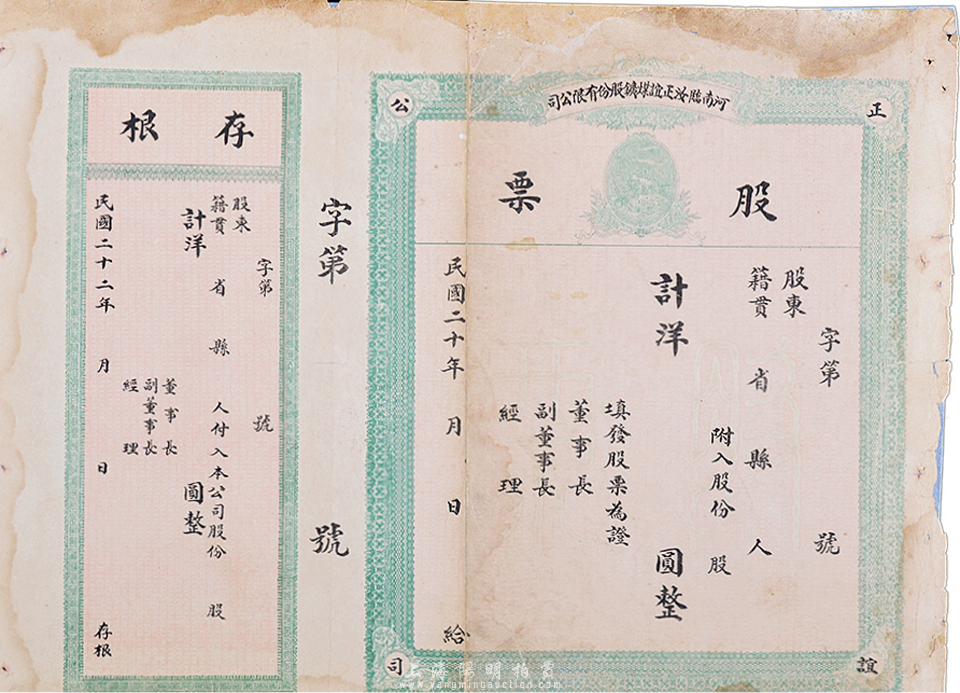 河南臨汝正誼煤鑛股份有限公司
正
公
誼
司
股票
字第 號
股東
籍貫 省 縣 人
附入股份 股
計洋 圓整
填發股票為證
董事長
副董事長
經理
民國二十年 月 日 給
字第 號
存根
字第 號
股東
籍貫 省 縣 人付入本公司股份 股
計洋 圓整
董事長
副董事長
經理
民國二十二年 月 日 存根
上海陽明拍賣
www.yangmingauction.com